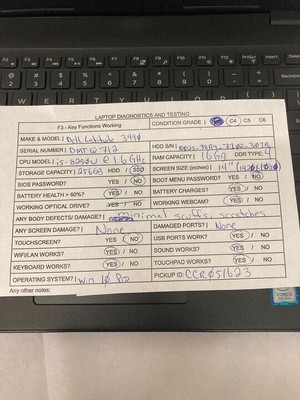 LAPTOP DIAGNOSTICS AND TESTING
F3 - Key Functions Working CONDITION GRADE C4 C5 C6
MAKE & MODEL Dell Latitude 3490
SERIAL NUMBER HDD S/N
CPU MODEL i5-8250U @ 1.6 GHz RAM CAPACITY 16GB DDR TYPE 4
STORAGE CAPACITY 256GB HDD / SSD SCREEN SIZE (inches) 14"
BIOS PASSWORD? YES / NO BOOT MENU PASSWORD? YES / NO
BATTERY HEALTH > 60%? YES / NO BATTERY CHARGES? YES / NO
WORKING OPTICAL DRIVE? YES / NO WORKING WEBCAM? YES / NO
ANY BODY DEFECTS/ DAMAGE? minimal scuffs, scratches
ANY SCREEN DAMAGE? None DAMAGED PORTS? None
TOUCHSCREEN? YES / NO USB PORTS WORK? YES / NO
WIFI/LAN WORKS? YES / NO SOUND WORKS? YES / NO
KEYBOARD WORKS? YES / NO TOUCHPAD WORKS? YES / NO
OPERATING SYSTEM? Win 10 Pro PICKUP ID: CCR051623
Any other notes: